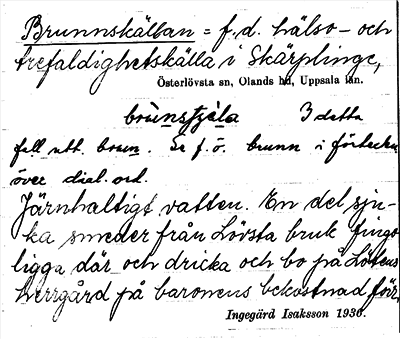 Brunnskällan = f.d. hälso- och
trefaldighetskälla i Skärplinge,
Österlövsta sn, Olands hd, Uppsala län.
I detta
fall utt. brun. Se f.ö. brunn i förteckn.
över dial. ord.
Järnhaltigt vatten. En del sju-
ka smeder från Lövsta bruk fingo
ligga där och dricka och bo på
herrgård på baronens bekostnad förr.
Ingegärd Isaksson 1936.